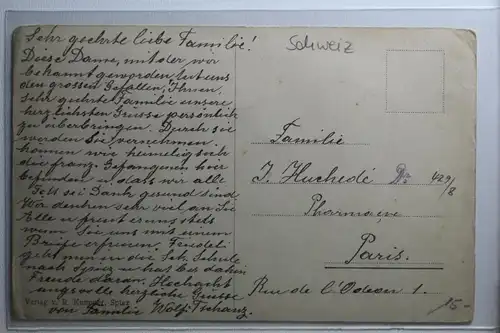 Sehr geehrte liebe Familie!
Diese Dame, mit der wir
bekannt geworden tut uns
den grossen Gefallen, Ihnen,
sehr geehrte Familie unsere
herzlichsten Grüsse persönlich
zu überbringen. Durch sie
werden Sie, vernehmen
können wie heimelig sich
die franz. Gefangenen hier
befinden u. dass wir alle
Gott sei Dank gesund sind.
Wir denken sehr viel an Sie
Alle u freut es uns stets
wenn Sie uns mit einem
Briefe erfreuen. Friedeli
geht nun in die Sek. Schule
nach Spiez u hat bis dahin
Freude daran. Hochacht
ungsvolle herzliche Grüsse
von Familie Wolf-Tschanz.
Verlag v. R. Spiez
Schweiz
Familie
J. Huchedé
429/8
Pharmacie
Paris.
Rue de l'Odeon 1.
15.-